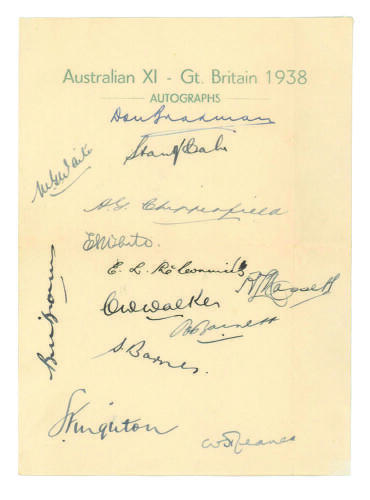 Australian XI - Gt. Britain 1938
AUTOGRAPHS
Don Bradman
Stan McCabe
M.G. Waite
A.G. Chipperfield
E. S. White
E. L. McCormick
A. L. Hassett
C. W. Walker
B. A. Barnett
S. Barnes